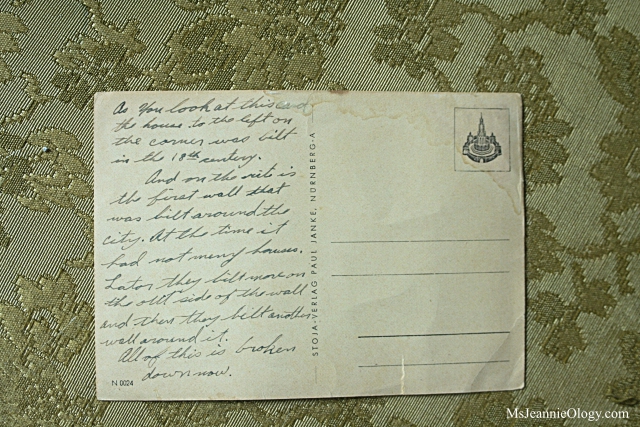 As You look at this card
the house to the left on
the corner was bilt
in the 18th century.
And on the rite is
the first wall that
was bilt around the
city. At the time it
had not meny houses.
Later they bilt more on
the out side of the wall
and then they bilt another
wall around it.
All of this is broken
down now.
N 0024
STOJA-VERLAG PAUL JANKE, NÜRNBERG-A
MsJeannieOlogy.com